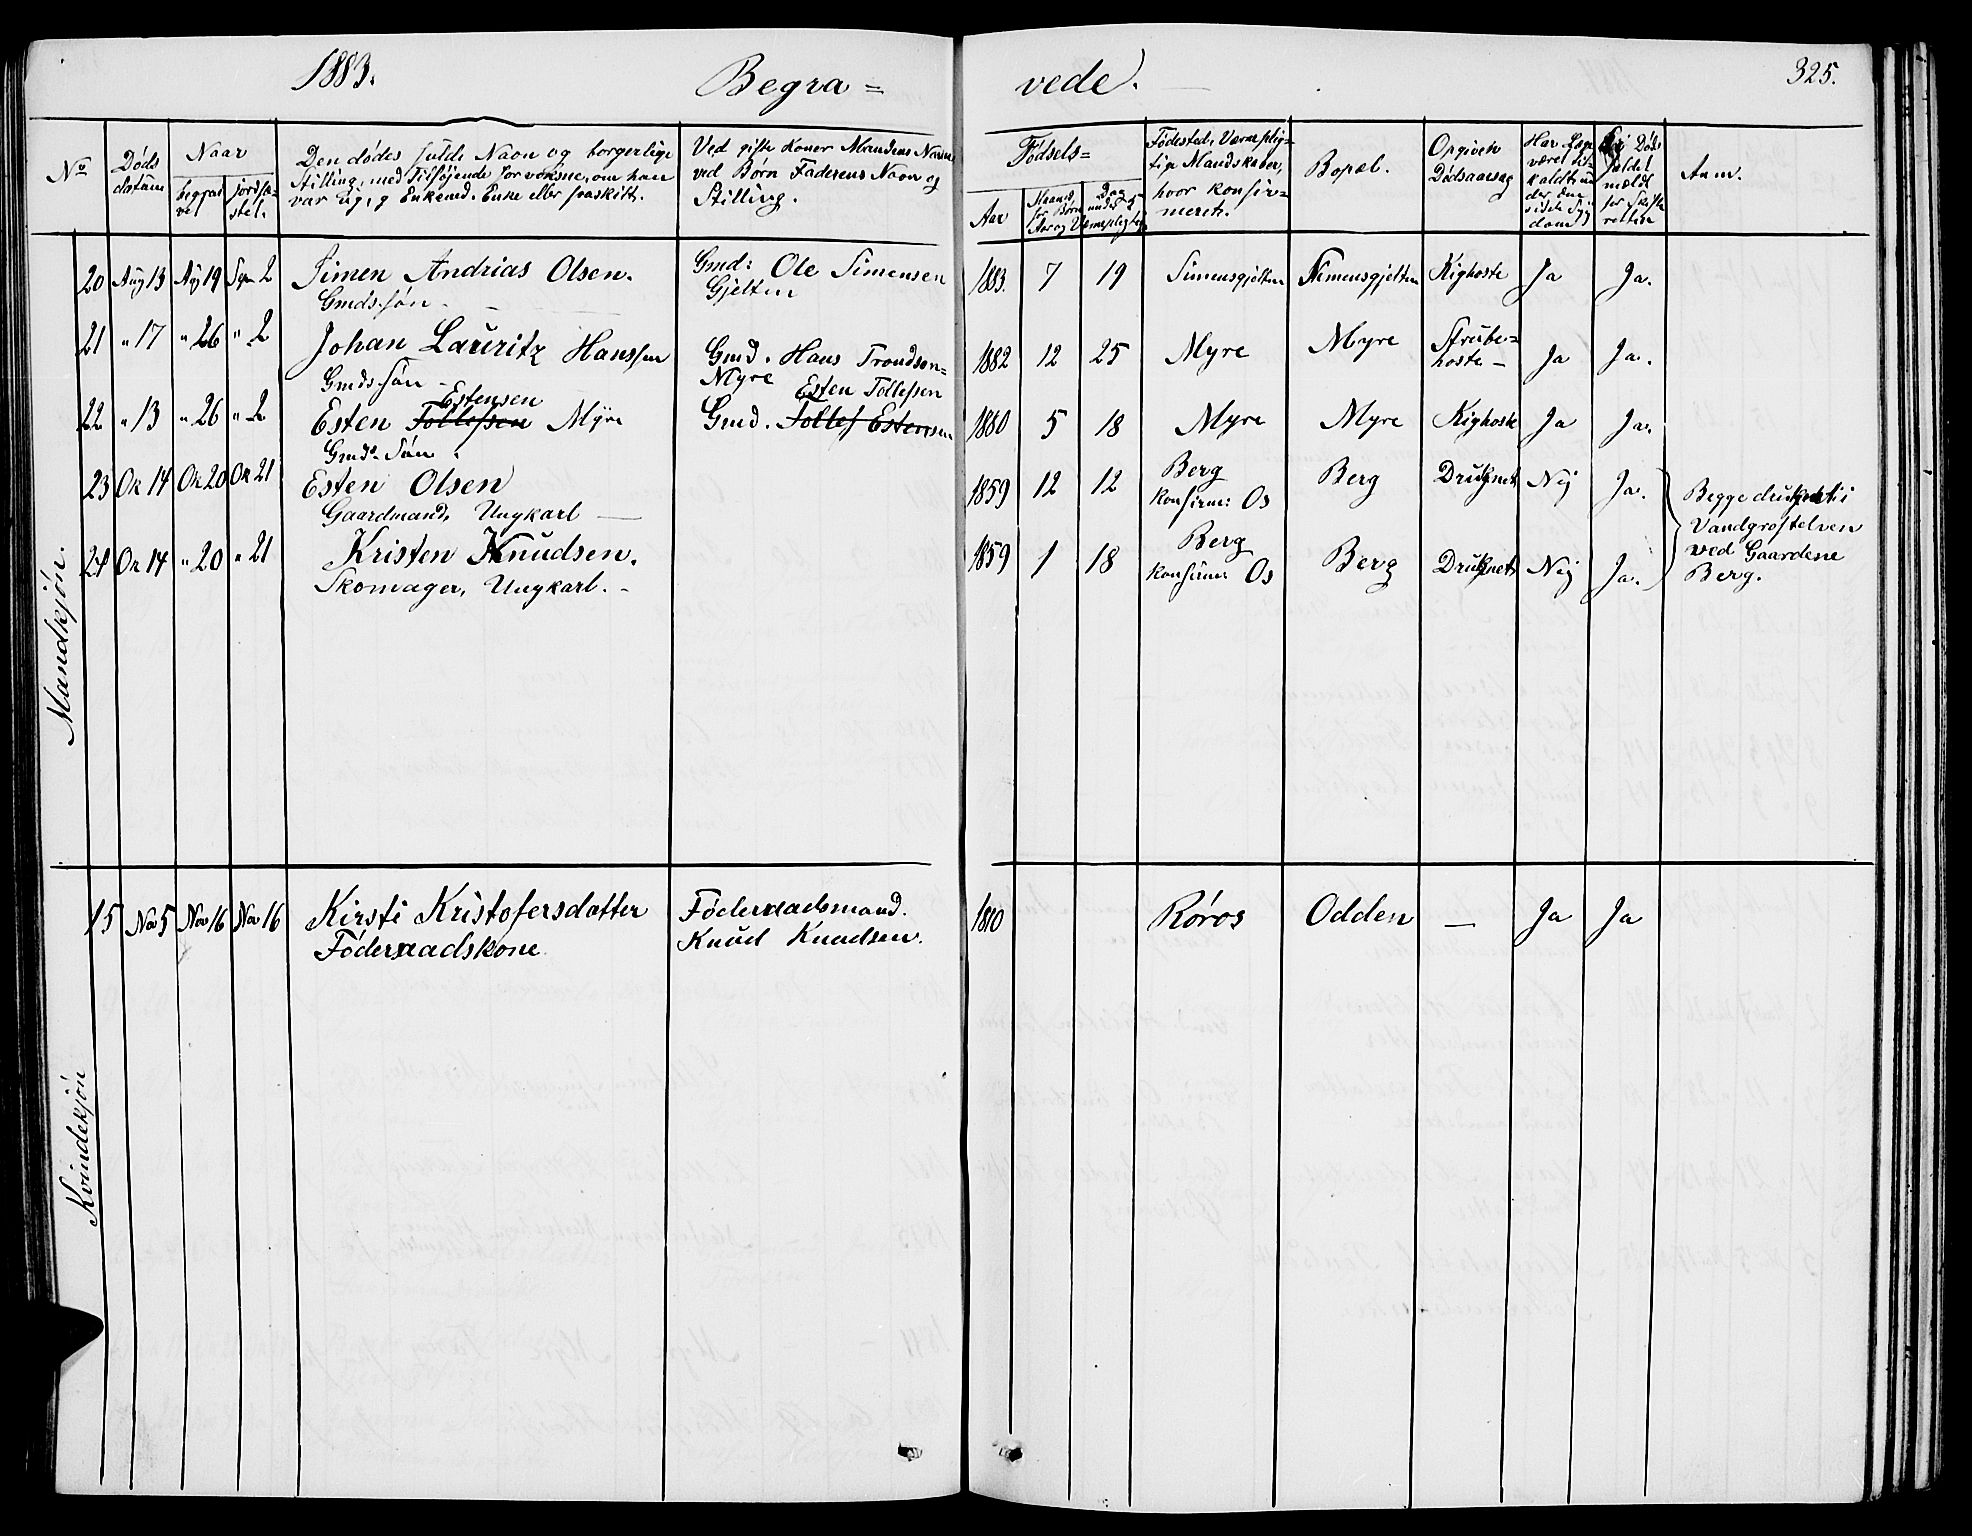 1883. Begra= vede. 325.
No Døds datum Naar begravet jordfæstet. Den dødes fulde Navn og borgerlige Stilling, med Tilføjende for voksne, om han var ug., g. Enkemd. Enke eller fraskilt. Ved gifte Koner Mandens Navn ved Børn Faderens Navn og Stilling. Fødsels= Aar Maaned for Børn Dag under Bopæl. Opgiven Dødsaarsag Anm.
Fødested, Værnepligtige Mandskaber, hvor konfirmeret.
Har Læge været tilkaldt under den sidste Sygdom
Er Dødsfaldet meldt for Skifteretten
Mandkjøn.
20 Aug 13 Aug 19 Sep 2 Simen Andrias Olsen. Gmd: Ole Simensen 1883. 7 19 Simensgjelten Simensgjelten Kighoste Ja Ja.
Gmds. søn - Gjelten
21 " 17 " 26 " 2 Johan Lauritz Hanssen Gmd. Hans Trondsen= 1882 12 25 Myre Myre Strubehoste - Ja Ja.
Gmds. søn - Myre
Estensen Esten Tollefsen
22 " 13 " 26 " 2 Esten Tollefsen Myre Gmd. Tollef Estensen 1880 5 18 Myre Myre Kighoste Ja Ja.
Gmds. Søn.
23 Ok 14 Ok 20 Ok 21 Esten Olsen 1859 12 12 Berg Berg Druknet Nej Ja.
Gaardmand, Ungkarl konfirm: Os
24 Ok 14 " 20 " 21 Kristen Knudsen. 1859 1 18 Berg Berg Druknet Nej Ja.
Skomager, Ungkarl. - konfirm: Os
Begge druknet i
Vandgrøftelven
ved Gaardene
Berg.
Kvindekjøn
15 Nov 5 Nov 16 Nov 16 Kirsti Kristofersdatter Føderaadsmand. 1810 Røros Odden — Ja Ja
Føderaadskone Knud Knudsen.